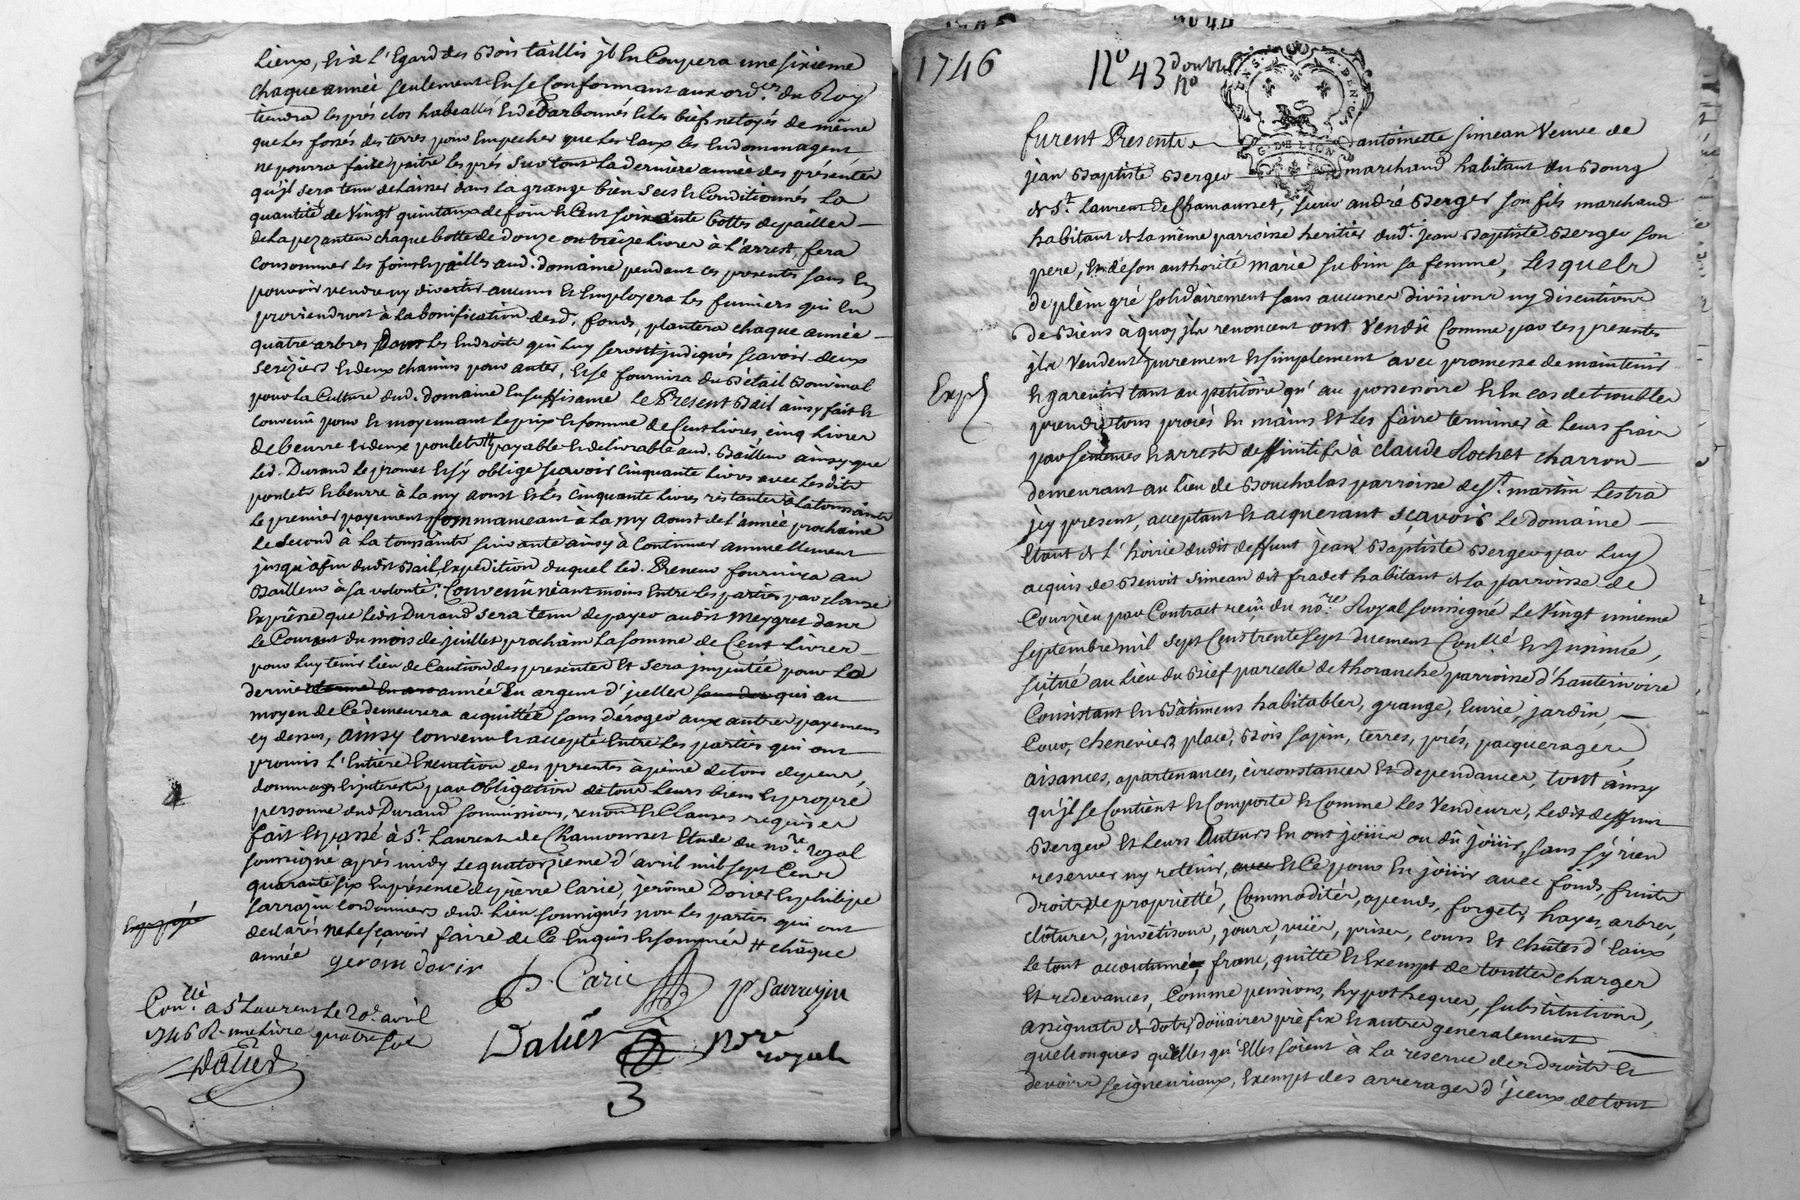 Lieux, et à l'Egard des Bois taillis jl En Coupera une sixieme
chaque année seulement En se Conformant aux ord.ces du Roy
tiendra les prés clos habeallés Et des et Les biefs netoyés de même
que Les fossés des terres pour Empecher que Les Eaux Les Endommagent
ne pourra faire paitre les prés sur tout La derniere année des présentes
qu'jl sera tenu de Laisser dans La grange bien secs et Conditionnés La
quantité de Vingt quintaux de foin et Cent soixante bottes de pailles
de La pezanteur chaque botte de douze ou treize Livres à L'arrest, fera
Consommer Les foins Et pailles aud. domaine pendant ces presentes sans En
pouvoir vendre ny divertir aucuns Et Employera Les fumiers qui En
proviendront à La bonification desd. fonds, plantera chaque année
quatre arbres Dans Les Endroits qui Luy seront jndiqués sçavoir deux
seriziers Et deux chains pour antes, Et se fournira du Bétail Bovinal
pour La Culture dud. domaine En suffisame Le Present Bail ainsy fait Et
Convenû pour Et moyennant Le prix Et somme de Cent Livres, cinq Livres
de beurre Et deux poulets # payable Et delivrable aud. Bailleur ainsy que
Led. Durand Le promet Et s'y oblige sçavoir Cinquante Livres avec Lesdits
poulets Et beurre à La my aoust Et Les Cinquante Livres restantes à La toussaints
Le premier payement Commanceant à La my Aoust de L'année prochaine
Le second à La toussaints suivante ainsy à Continuer annuellement
jusqu'à fin dudit Bail, Expedition duquel Led. Preneur fournira au
Bailleur à sa volonté. Convenû néantmoins Entre Les parties par clause
Expresse que Ledit Durand sera tenu de payer audit Meygret dans
Le Courant du mois de juillet prochain La somme de Cent Livres
pour Luy tenir Lieu de Caution des presentes Et sera jmputée pour La
derniere année En argent d'jcelles qui au
moyen de Ce demeurera acquittée sans déroger aux autres payemens
cy dessus, ainsy Convenu Et accepté Entre Les parties qui ont
promis L'Entiere Execution des presentes à peine de tous depens,
dommages Et jnterests par obligation de tous Leurs biens Et propre
personne dud. Durand soumissions, renon.ons Et Clauses requises
fait Et passé à St. Laurent de Chamousset Etude du no.re royal
soussigné après midy Le quatorzieme d'avril mil sept Cens
quarante six En présence de pierre Carie, jerôme Dorier Et philipe
sarrazin Cordonniers dud. Lieu soussignés non Les parties qui ont
declarés ne Le sçavoir faire de Ce Enquis Et sommées # chaque
année
gerom dorir
P. Carie
P Sarrazin
Con.llé à St Laurent Le 20.e avril
1746 R. une Livre quatre sols
Dalier
Dalier
no.re
royal
3
1746
No 43 double
no
G. DE LION
furent Presents antoinette simean Veuve de
jean Baptiste Berger marchand habitant du Bourg
de St. Laurent de Chamousset, sieur andré Berger son fils marchand
habitant de La même parroisse heritier dud. jean Baptiste Berger son
pere, Et de son authorité marie subrin sa femme, Lesquels
de plein gré solidairement sans aucunes divisions ny discutions
de Biens à quoy jls renoncent ont Vendû Comme par ces presentes
jls Vendent purement Et simplement avec promesse de maintenir
Exp.d
Et garentir tant au petitoire qu'au possessoire Et En cas de troubles
prendre tous procès En mains Et Les faire terminer à Leurs frais
par sentences Et arrests deffinitifs à claude Rochet charron
demeurant au Lieu de Bouchalas parroisse de St. martin Lestra
jcy present, acceptant Et acquerant sçavoir Le domaine
Etant de L'hoirie dudit deffunt jean Baptiste Berger par Luy
acquis de Benoit simean dit fradet habitant de La parroisse de
Courzieu par Contract reçû du no.re Royal soussigné Le Vingt unieme
septembre mil sept Cens trente sept duement Con.llé Et jnsinué,
situé au Lieu du Bief parcelle de thoranche parroisse d'hauterivoire
Consistant En Bâtimens habitables, grange, Ecurie, jardin,
Cour, chenevier, place, Bois sapin, terres, prés, pacquerages,
aisances, apartenances, circonstances Et dependances, tout ainsy
qu'jl se Contient Et Comporte Et Comme Les Vendeurs, Ledit deffunt
Berger Et Leurs Auteurs En ont joüir ou dû joüir, sans s'y rien
reserver ny retenir, avec Et Ce pour En joüir avec fonds, fruits
droits de proprietté, Commodités, apends, forgets, hayes, arbres,
clôtures, jnvetisons, jours, vües, prises, cours Et chûtes d'Eaux
Le tout accoutumé, franc, quitte Et Exempt de touttes charges
Et redevances, Comme pensions, hypotheques, substitutions,
assignats de dots, doüaires prefix Et autres generalement
quelconques qu'elles qu'Elles soient à La reserve des droits Et
devoirs seigneuriaux, Exempt des arrerages d'jceux de tout